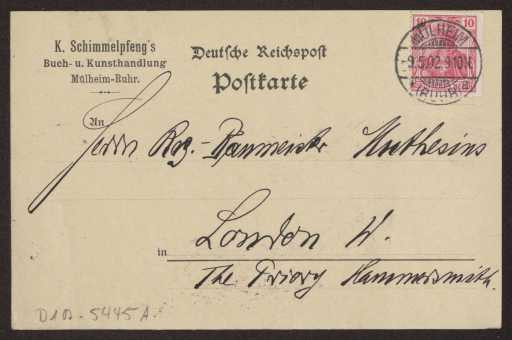 K. Schimmelpfeng's
Buch- u. Kunsthandlung
Mülheim-Ruhr.
Deutsche Reichspost
Postkarte
10 10
MÜLHEIM
9.5.02.9-10N.
(RUHR)
An
Herrn Reg.-Baumeister Muthesius
in London W.
The Priory Hammersmith.
D102-5445 A.